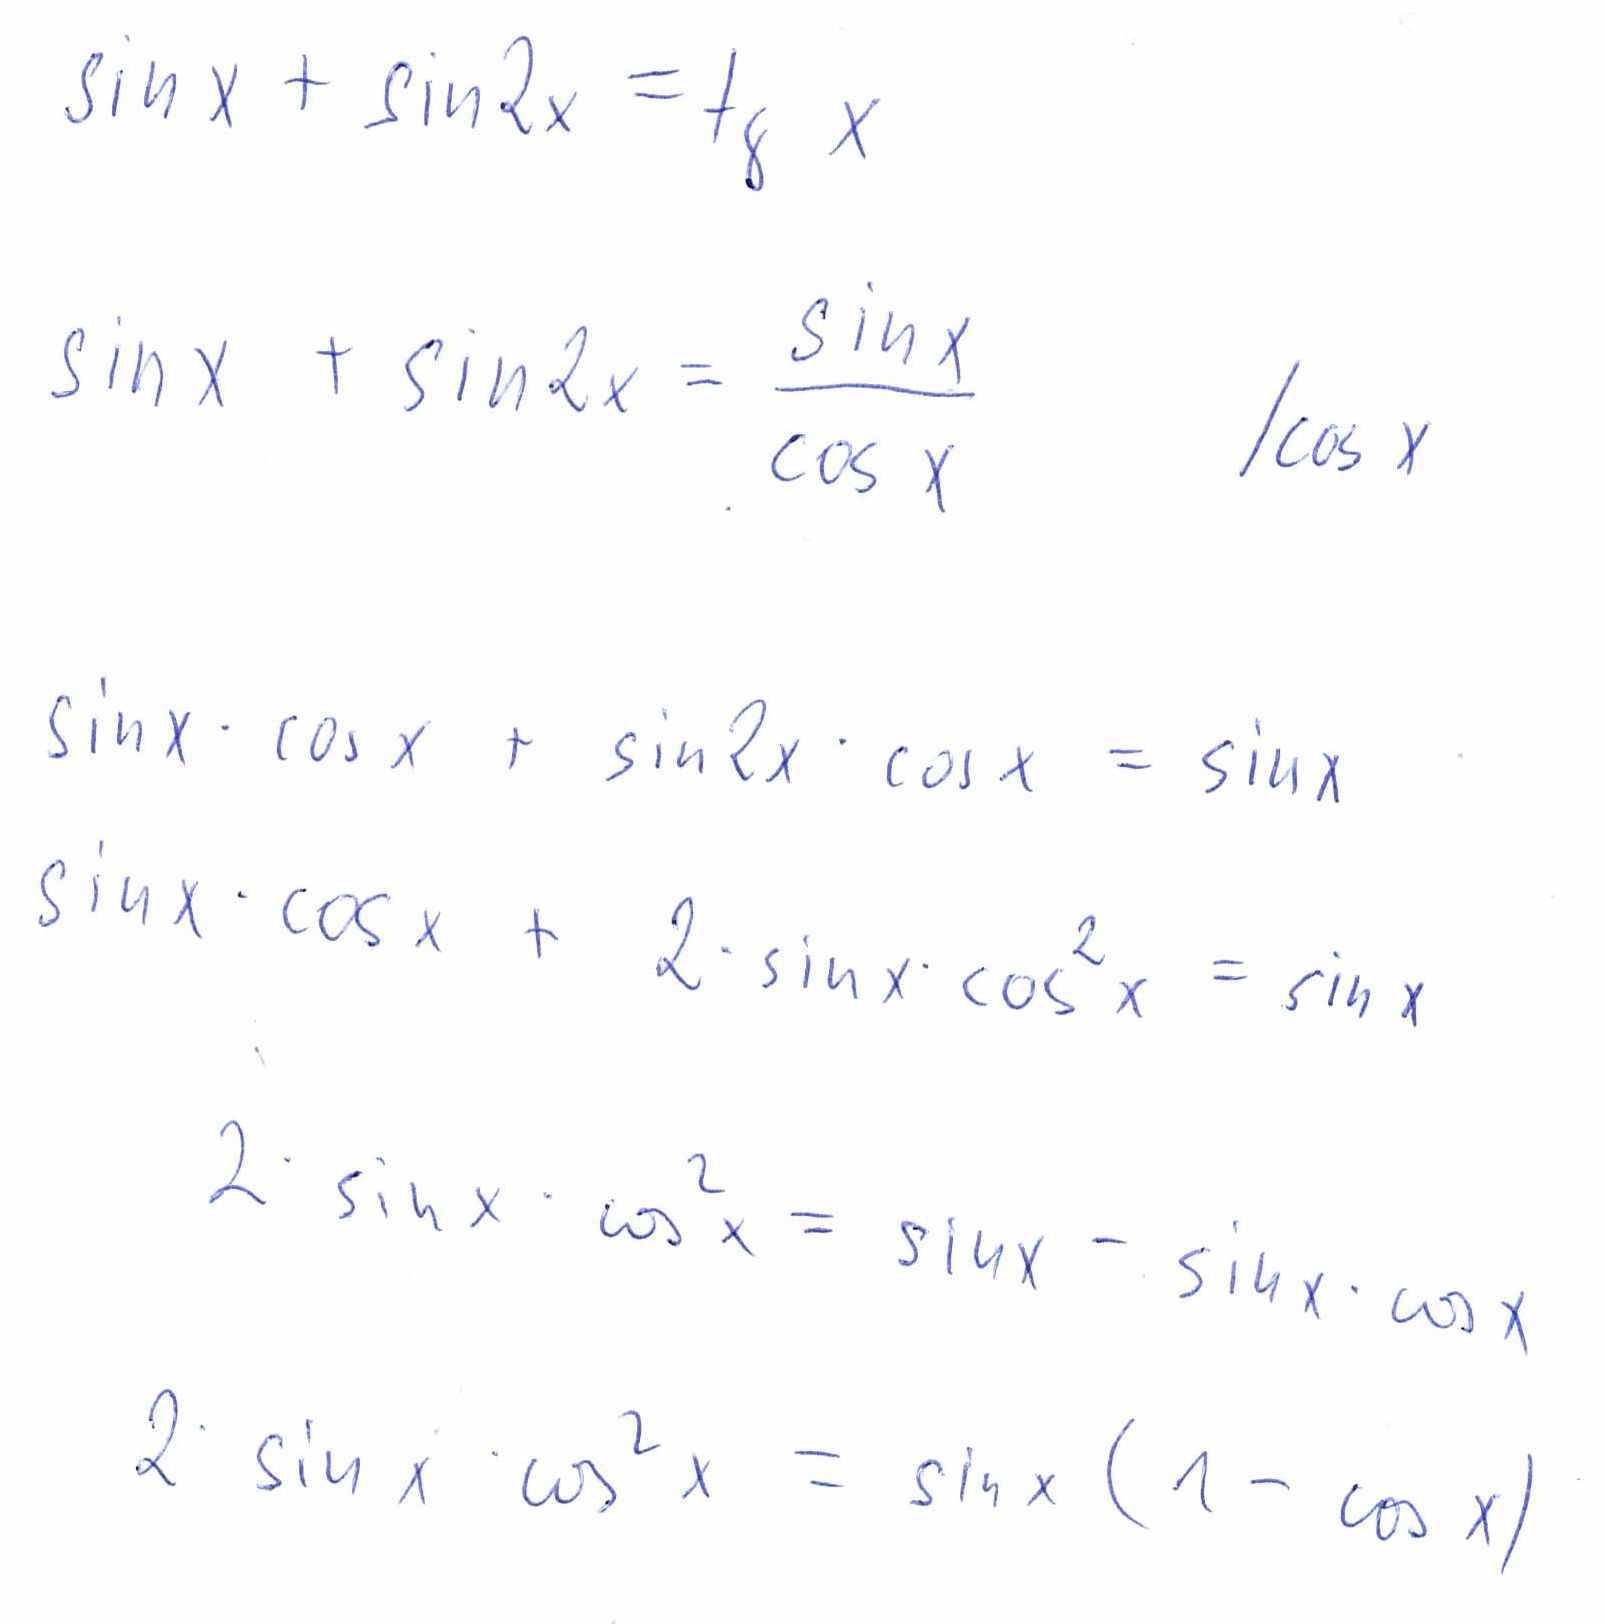 sin x + sin2x = tg x
sin x + sin2x = sin x / cos x /cos x
sin x · cos x + sin2x · cos x = sin x
sin x · cos x + 2 · sin x · cos²x = sin x
2 · sin x · cos²x = sin x - sin x · cos x
2 · sin x · cos²x = sin x (1 - cos x)